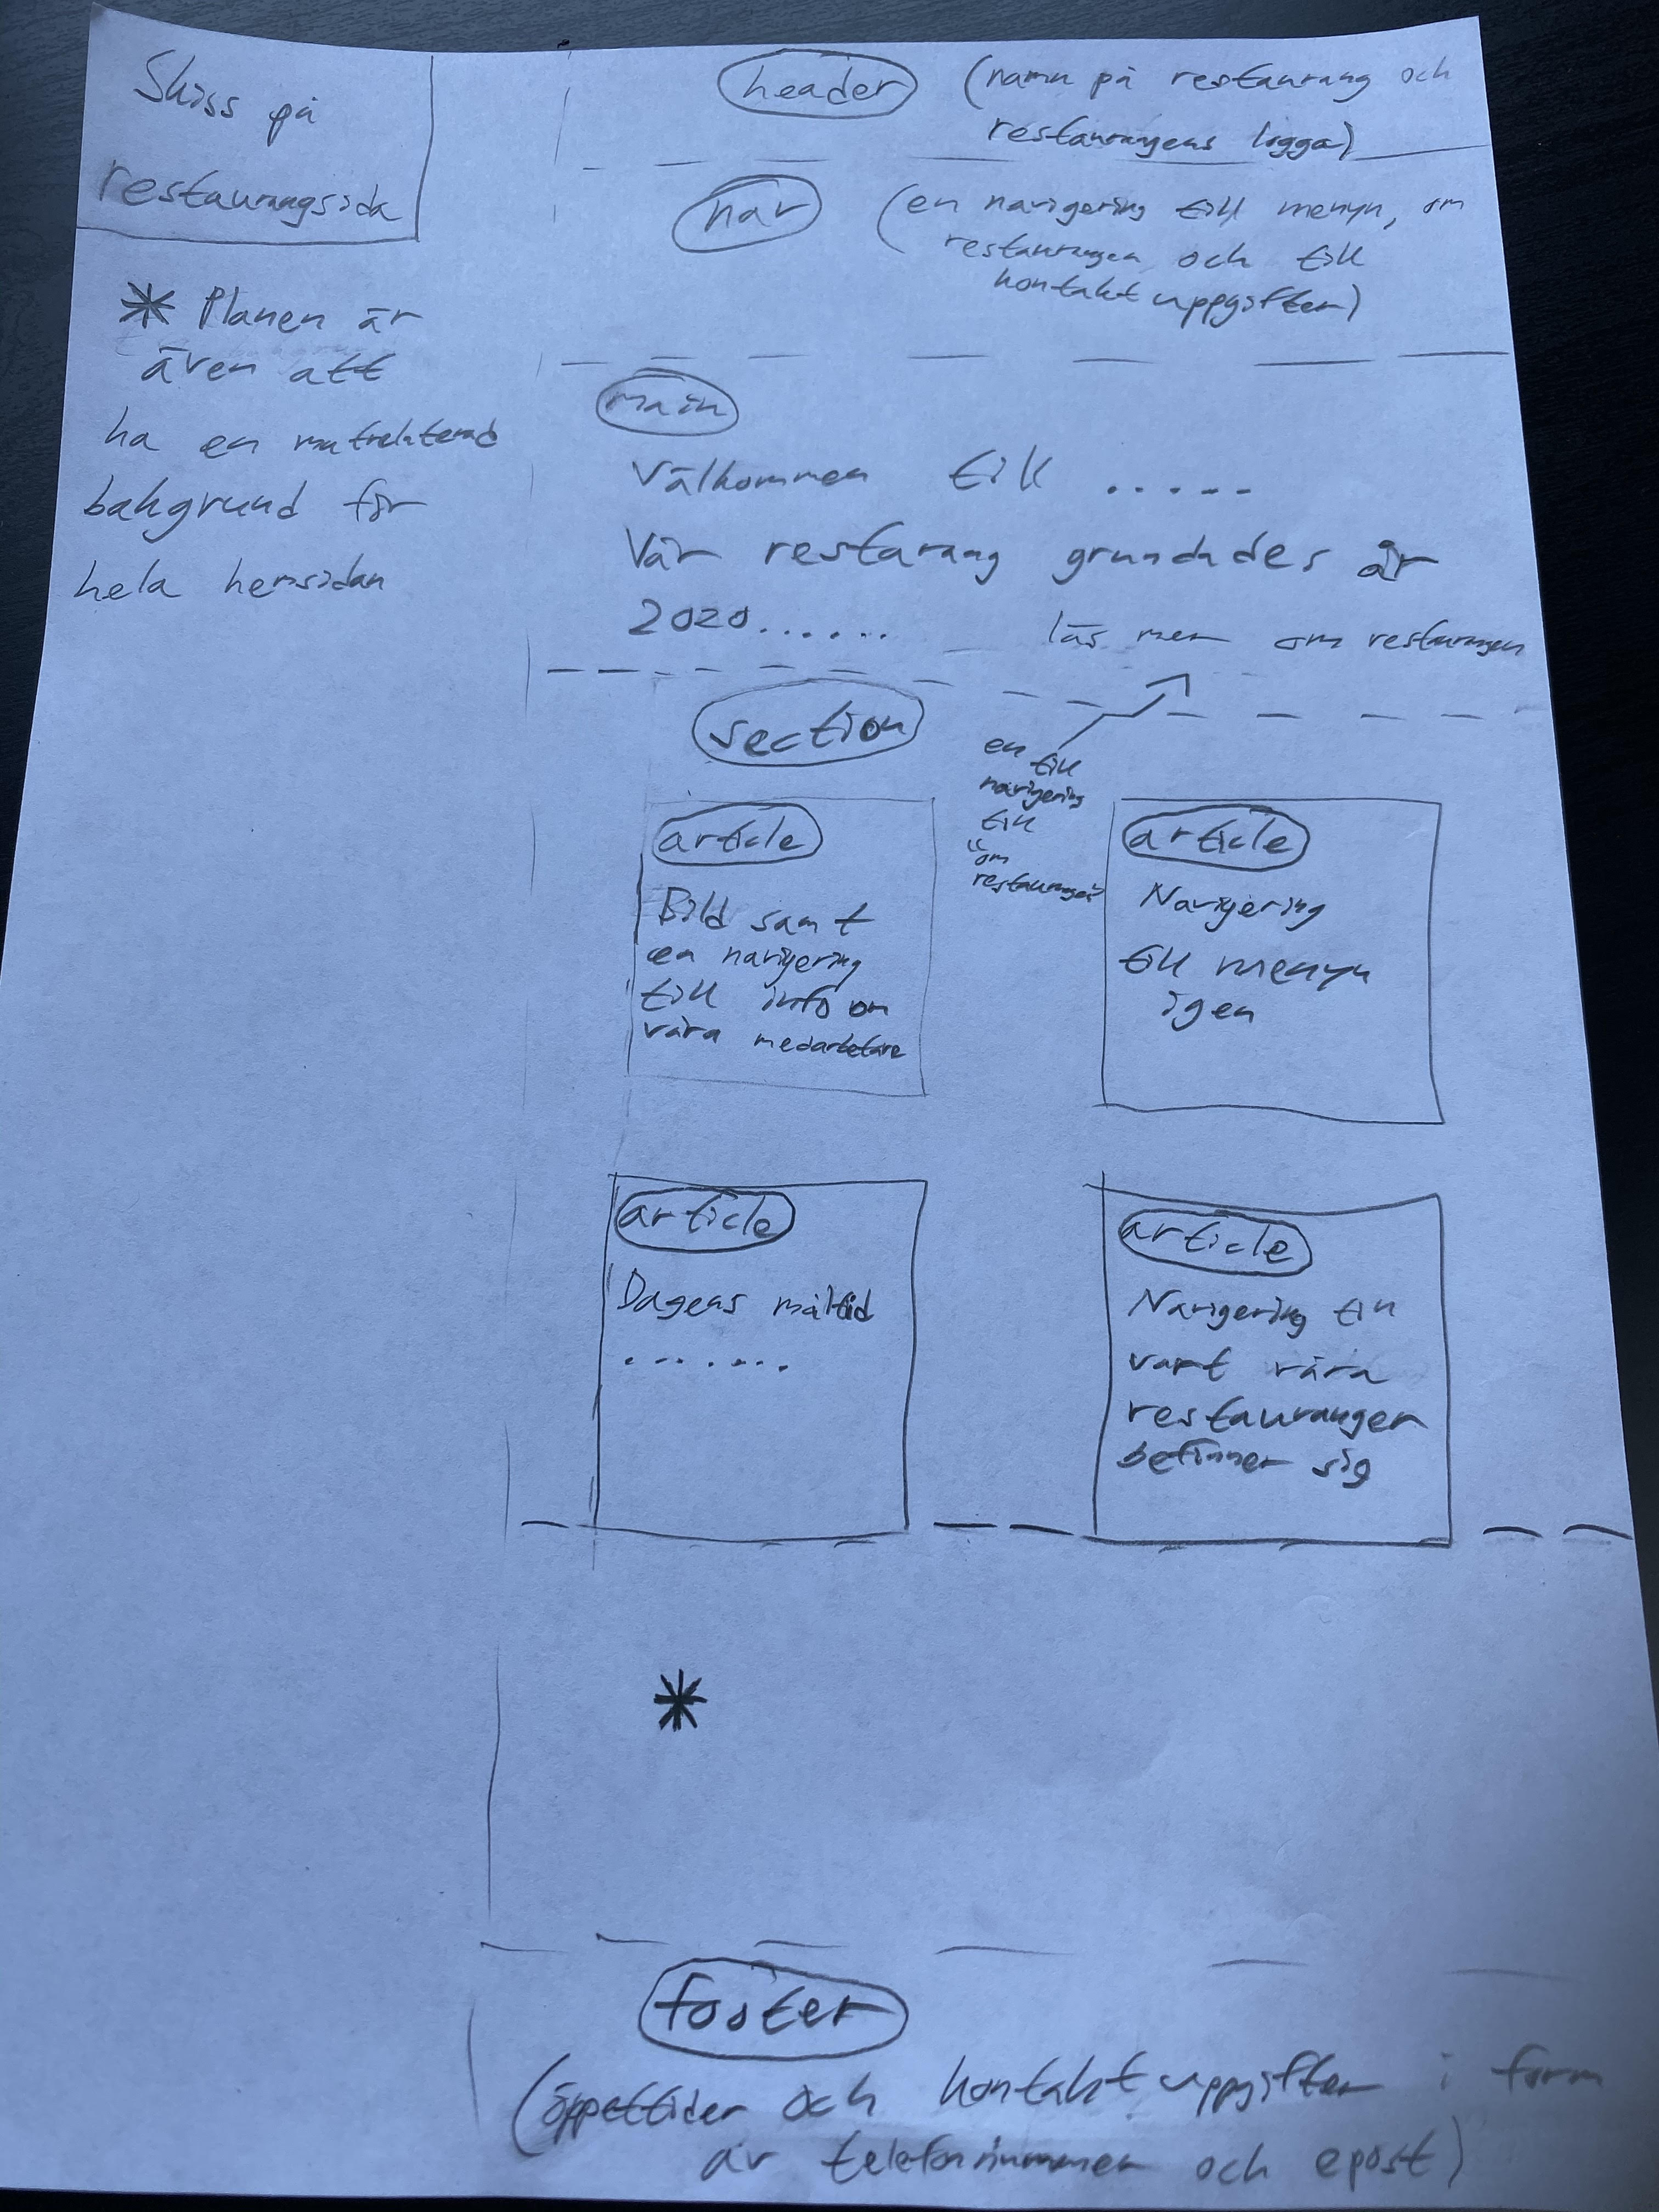 Skiss på
restaurangsida
* Planen är
även att
ha en matrelaterad
bakgrund för
hela hemsidan
header (namn på restaurang och
restaurangens logga)
nav (en navigering till menyn, om
restaurangen och till
kontaktuppgifter)
main
Välkommen till .....
Vår restarang grundades år
2020...... läs mer om restaurangen
section
en till
navigering
till
"om
restaurangen"
article
Bild samt
en navigering
till info om
våra medarbetare
article
Navigering
till menyn
igen
article
Dagens måltid
.......
article
Navigering till
vart våra
restauranger
befinner sig
*
footer
(öppettider och kontaktuppgifter i form
av telefonnummer och epost)